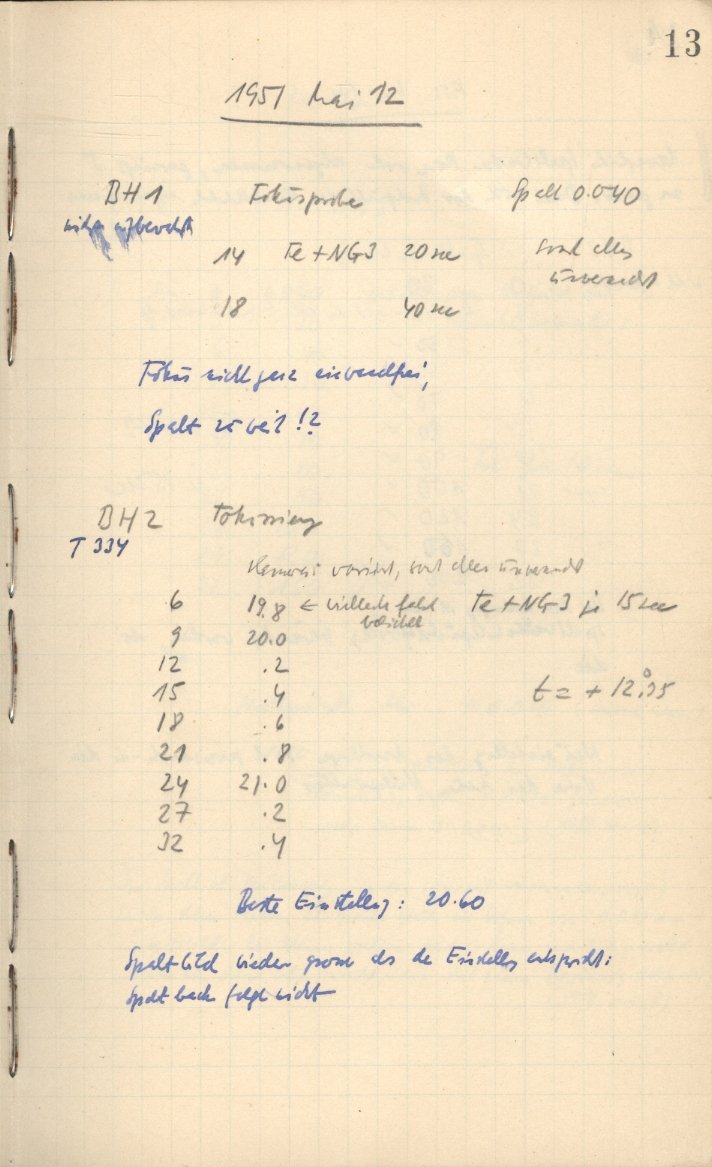 13
1951 Mai 12
BH 1 Fokusprobe Spalt 0.040
nicht aufbewahrt
14 Fe + NG3 20 sec sonst alles
unverändert
18 40 sec
Fokus nicht ganz einwandfrei,
Spalt zu weit!?
BH 2 Fokussierung
T 334
variiert, sonst alles unverändert
6 19.8 ← vielleicht falsch Fe + NG-3 je 15 sec
9 20.0
12 .2
15 .4 t = + 12.°35
18 .6
21 .8
24 21.0
27 .2
32 .4
Beste Einstellung: 20.60
Spaltbild wieder grösser als der Einstellung entspricht:
Spaltbacke folgt nicht